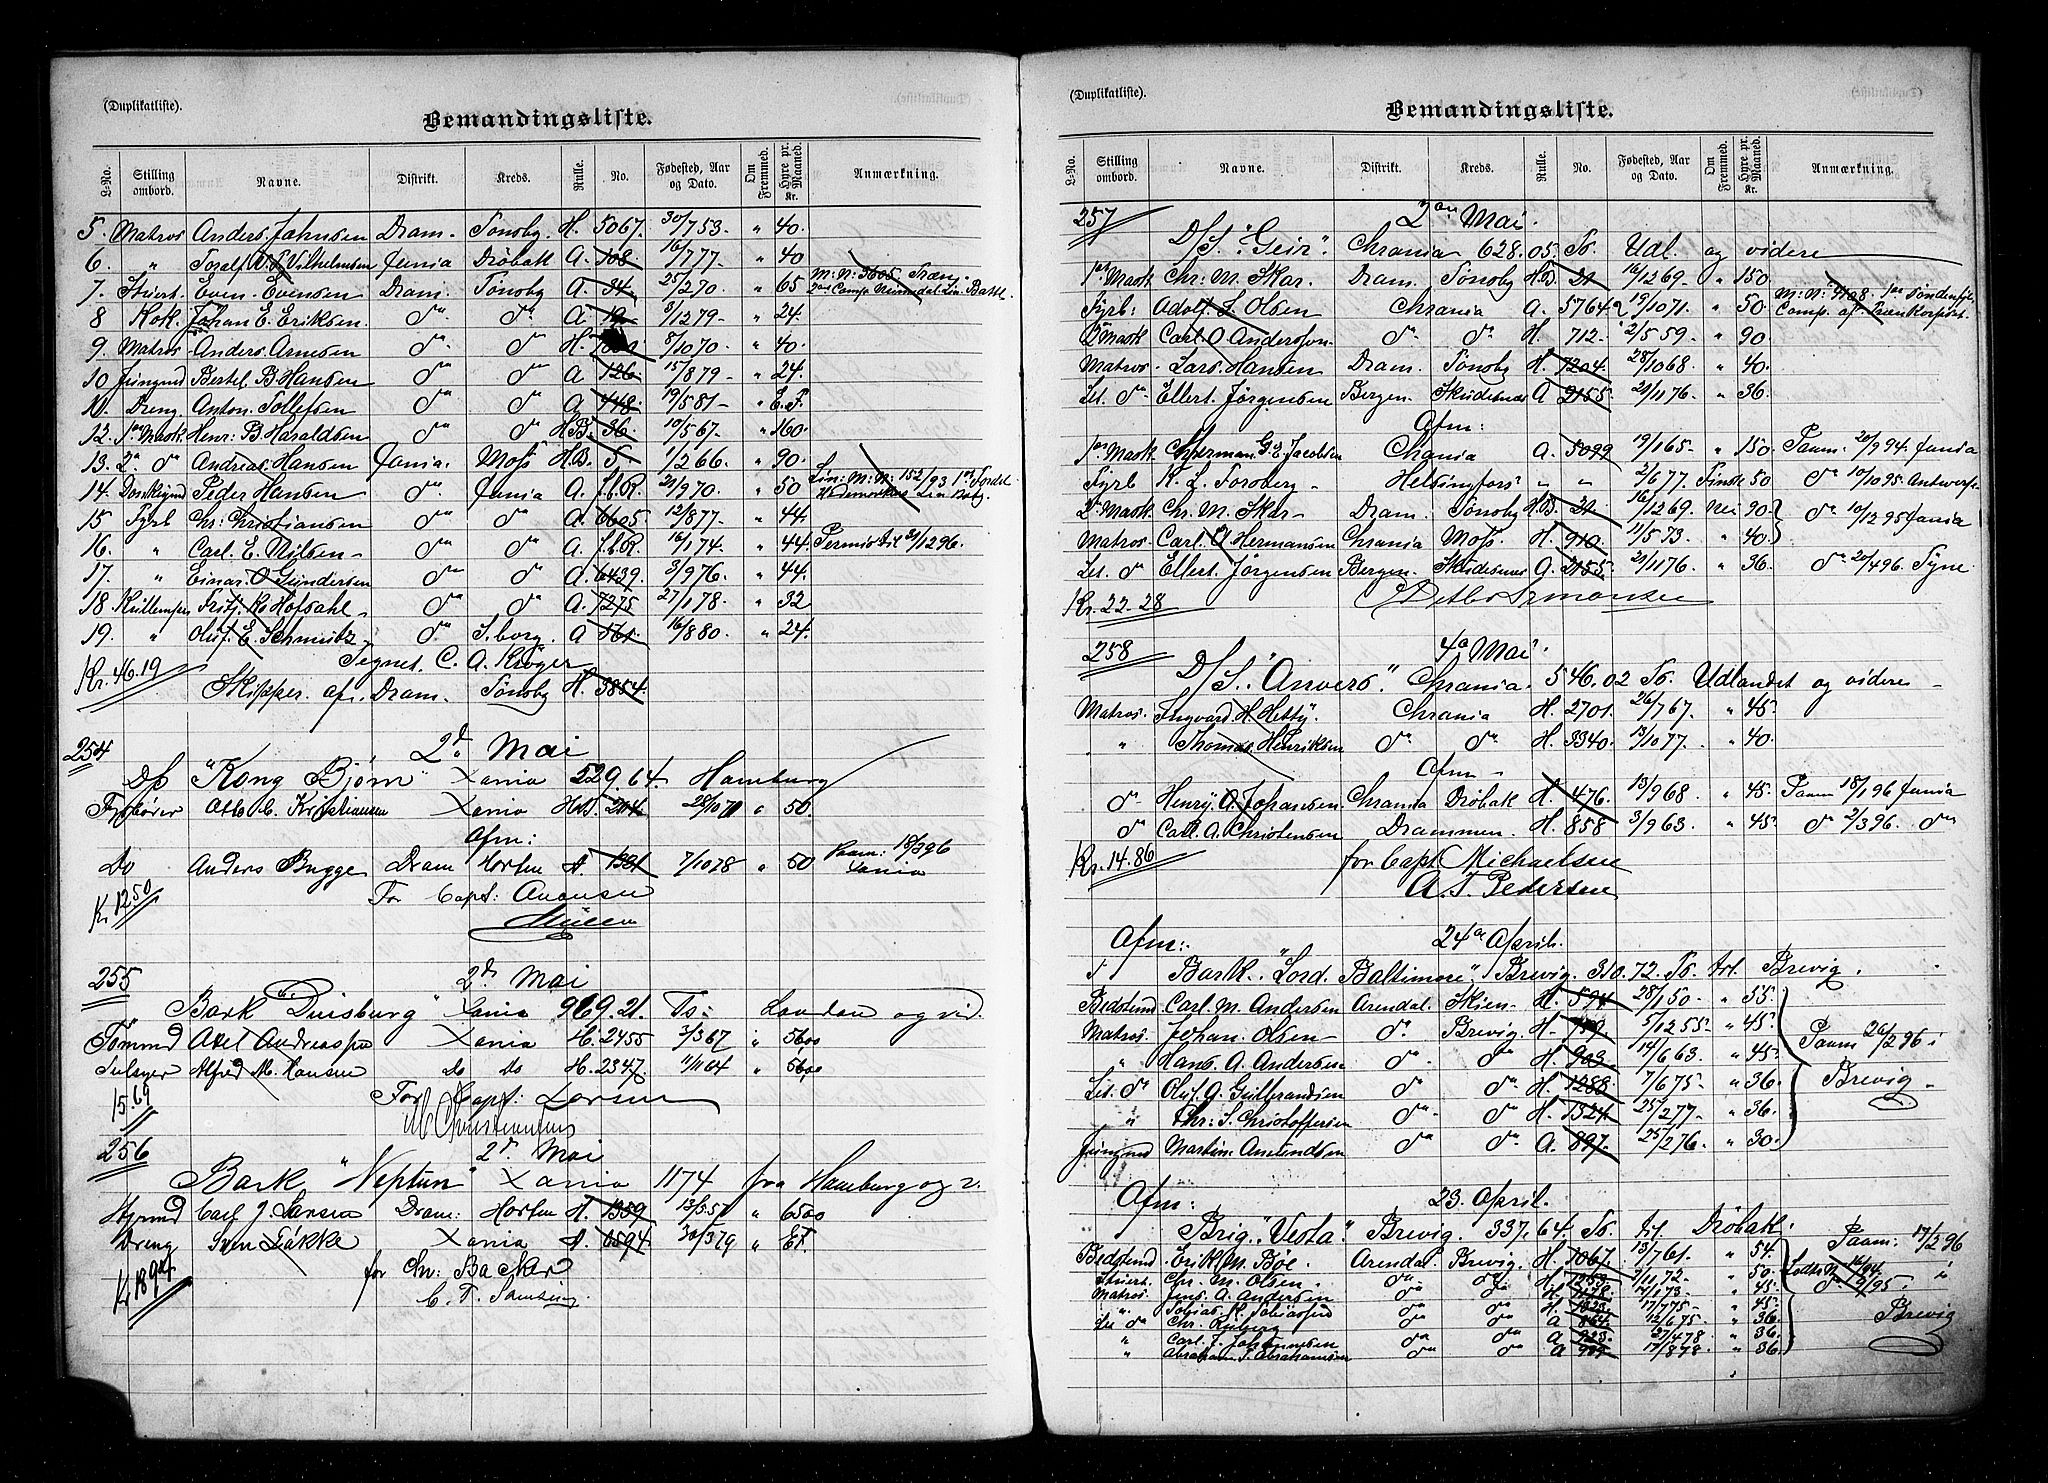 (Duplikatliste).
Bemandingsliste.
L-No. Stilling ombord. Navne. Distrikt. Kreds. Rulle. No. Fødested, Aar og Dato. Om Fremmed. Hyre pr. Maaned. Kr. Anmærkning.
5. Matros Anders Jahnsen Dram. Tønsbg. H. 5067. 30/7 53 - " 40.
6. " Toralf A. S. Vilhelmsen Xania Drøbak A. 308. 16/7 77. - " 40
7. Stuert. Even. Evensen Dram. Tønsby A. 34. 25/2 70. - " 65
8 Kok. Johan E. Eriksen. do do A. 3/12 79 - " 24.
9. Matros - Anders Arnesen do do H. 8/10 70. " 40.
10 Jungmd Bertel. B. Hansen do do A 126. 15/8 79 - " 24.
Dreng. Anton. Tollefsen do do A 448. 19/5 81 - " E. F.
12. 1ste Mask. Henr: B. Haraldsen do do H.B. 36. 10/5 67. " 160.
13. 2. do Andreas Hansen Xania. Moss H.B. 5. 1/2 66. " 90.
14. Donkeymd Peder Hansen do. Xania A. f.b.R. 21/9 70. " 50
15 Fyrb Chr: Christiansen do do A. 6605. 12/8 77 - " 44.
16. " Carl. E. Nilsen - do do A. f.b.R. 16/1 74. " 44. Permis til 31/12 96.
17. " Einar. O. Gundersen do do A. 6439. 3/9 76 - " 44.
18 Kullemper Fritj. K. Hofdahl - do do A. 7275 27/1 78. " 32
19. " Oluf. E. Schmultz do. S.borg. A 561. 16/8 80. " 24.
Kr. 46.19 Tegnet. C. A. Krøger
Skipper. af. Dram. Tønsby H. 3854.
254 2d Mai
D/S "Kong Bjørn" Xania 529.64. Hamburg
Fyrbøter Otto C. Kristiansen Xania H.B. 204. 28/10 70 " 50.
Afm:
Do Anders Bugge Dram Horten A. 1391 7/10 78 " 50 Paam: 18/3 96 Xania
Kr 12.50 For Capt: Anonsen
255 2d Mai
Bark "Duisburg" Xania 969.21. Ts: London og vid.
Tømmd Axel Andreassen Xania H. 2455 3/3 67 " 56 00
Seilmager Alfred M. Hansen do do H. 2347. 11/11 64 " 56 00
15.69 For Capt: Larsen
M Christiansen
256 2d Mai
Bark "Neptun" Xania 1174 fra Hamburg og v.
Styrmd Carl J. Larsen Dram: Horten H. 1359 13/3 51 " 65 00
Dreng Sven Løkke Xania A. 6594. 30/3 79 " EF.
Kr 18.94 for Chr: Backer
C. F. Samsing
(Duplikatliste).
Bemandingsliste.
L-No. Stilling ombord. Navne. Distrikt. Kreds. Rulle. No. Fødested, Aar og Dato. Om Fremmed. Hyre pr. Maaned. Kr. Anmærkning.
257 2den Mai.
D/S. "Geir". Chrania 628.05. Ts. Udl. og videre
1ste Mask Chr. M. Skar. Dram. Tønsby H.B. 21 16/12 69. " 150.
Fyrb: Adolf. S. Olsen Chrania A. 5764 19/10 71. " 50
2 Mask Carl. O. Andersson. do do H. 712. 2/5 59. " 90
Matros - Lars. Hansen Dram. Tønsby H. 7204. 28/10 68 " 40.
Let. do Ellert. Jørgensen Bergen. Skudesnes A 2155 21/11 76. " 36.
Afm:
1ste Mask Cherman. G. E. Jacobsen Chrania A. 5099 19/1 65. " 150 Paam. 20/9 94. Xania
Fyrb K. L. Forsberg - Helsingfors " " 2/6 77. Finsk 50 do 10/10 95. Antwerp.
2. Mask Chr. M. Skar - Dram. Tønsby H.B. 21 16/12 69. Nei 90. do 10/12 95 Xania
Matros Carl. A. Hermansen Chrania Moss H. 910. 11/5 73. " 40.
Let. do Ellert. Jørgensen Bergen. Skudesnes A. 2155. 21/11 76. " 36. do 20/4 96. Tyne
Kr. 22.28
258 4de Mai.
D/S. "Anvers". Chrania. 546.02 Ts. Udlandet og videre -
Matros. Ingvard. H. Hetty. Chrania H. 2701. 26/7 67. " 45.
" Thomas Henriksen do do H. 3340. 13/10 77. " 40.
Afm -
do. Henry. A. Johansen Chrania Drøbak H. 476. 13/9 68. " 45. Paam 18/1 96 Xania
do Carl. A. Christensen Drammen. H. 858 3/9 63. " 45 do 2/3 96. do
Kr. 14.86 for Capt Michaelsen
A. T. Pedersen
Afm: 24de April.
Bark. "Lord. Baltimore" Brevig. 310.72. Ts. Art. Brevig.
Bedstmd Carl. M. Andersen Arendal. Skien - H. 594. 28/1 50. " 55.
Matros. Johan. Olsen - do. Brevig. H. 759. 5/12 55 " 45. Paam 26/2 96 i
" Hans. A. Andersen do do H 903. 14/6 63. " 45. Brevig -
Let. do Oluf. A. Gulbrandsen do do H. 1288. 7/6 75 - " 36.
" Chr: S. Christoffersen do do H. 1324. 25/2 77. " 36.
Jungmd Martin. Amundsen do do A. 897. 25/2 76. " 30.
Afm: 23. April.
Brig. "Vesta" Brevig. 337.64. Ts. Art. Drøbak.
Bedstmd Erik. M. Bøe. Arendal Brevig. H. 1067. 13/7 61. " 54. Paam: 17/2 96
Stuert. Chr. M. Olsen. do do H. 1253. 1/11 72 - " 50.
Matros Jens. A. Andersen do do H. 1178. 14/1 73 - " 45. i
" Tobias. K. Tobiassen do do H. 1323. 17/7 75 - " 45. Brevig
Let do Chr. Ruberg do do A 864. 12/6 75 - " 36.
" Carl. F. Johannesen do do A 923. 27/4 78 " 36.
" Abraham. T. Abrahamsen do do A 17/8 78. " 36.